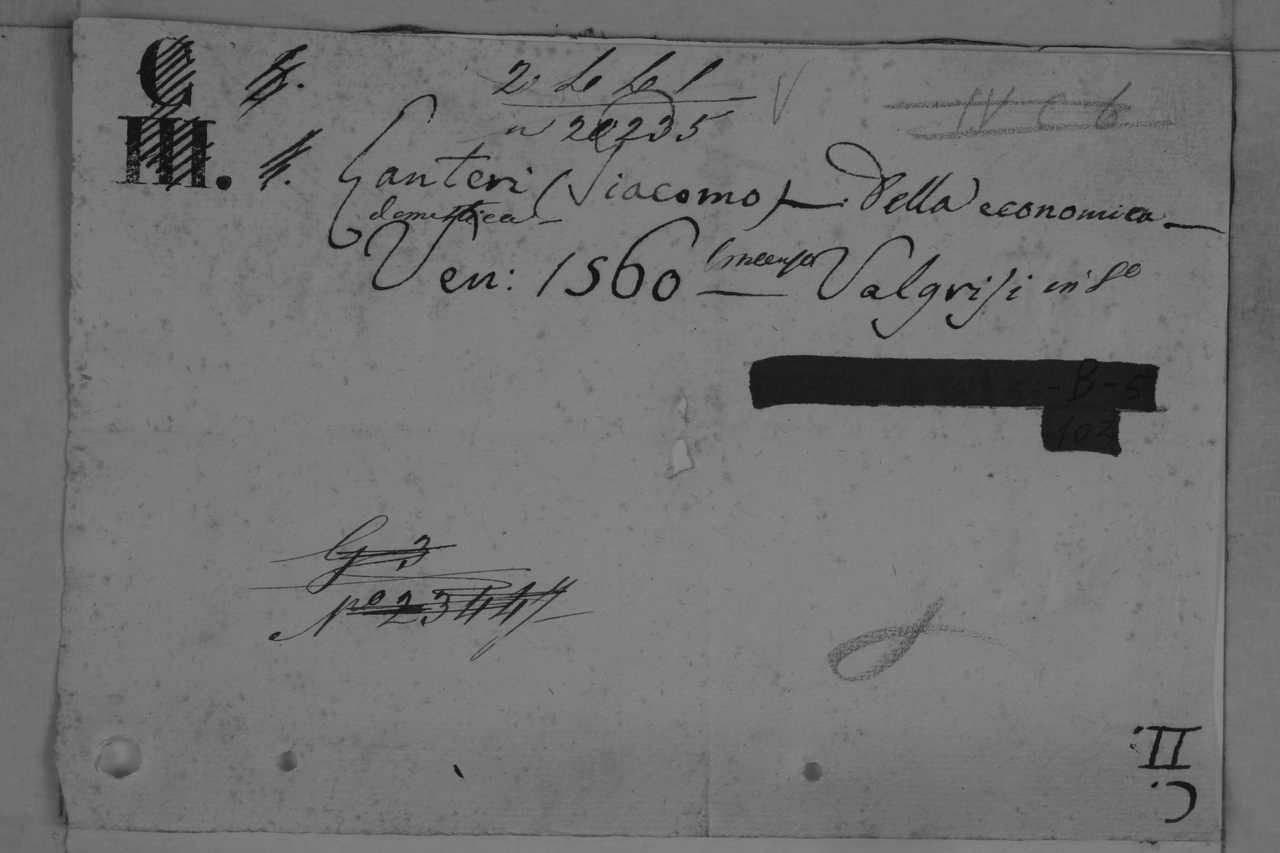 C
III.
2 Le Le 1
n 20235
IV C 6
Lanteri (Giacomo) Della economica
domestica
Ven: 1560 Vincenzo Valgrisi in 8º
- B - 5
102
G 3
Nº 23447
II.
C.